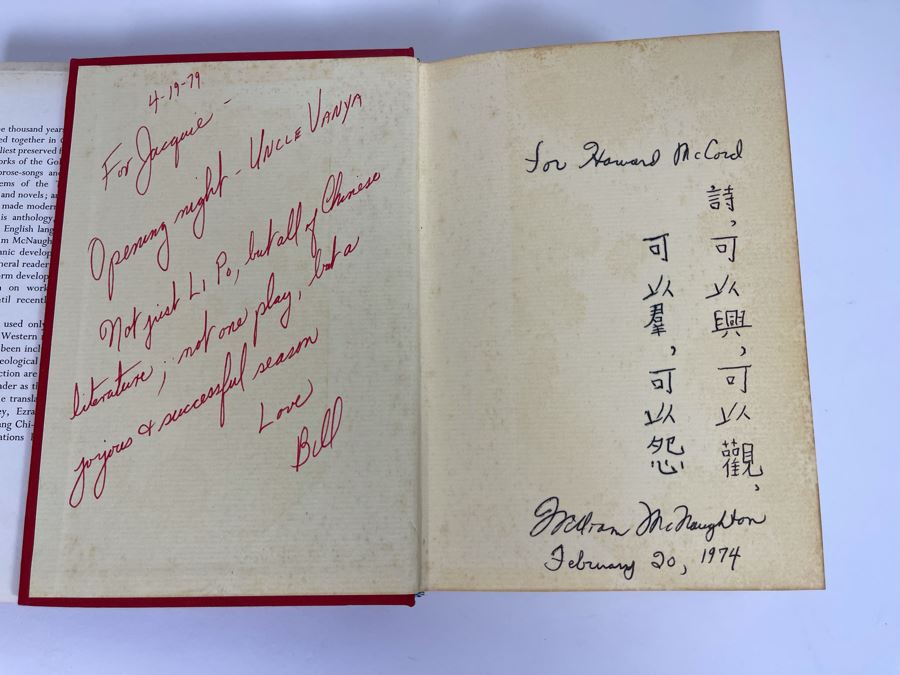 e thousand year
ed together in
liest preserved
orks of the Go
prose-songs and
ems of the T
and novels; a
made modern
is anthology,
English lang
m McNaugh
anic develop
neral reader
orm develop
on work
ntil recentl
used only
Western
been incl
eological
ction are
ader as th
e transla
ey, Ezra
ang Chi-
ations
4-19-79
For Jacquie -
Opening night - UNCLE VANYA
Not just Li Po, but all of Chinese
literature; not one play, but a
joyous & successful season
Love
Bill
for Howard McCord
詩,可以興,可以觀,
可以羣,可以怨
William McNaughton
February 20, 1974